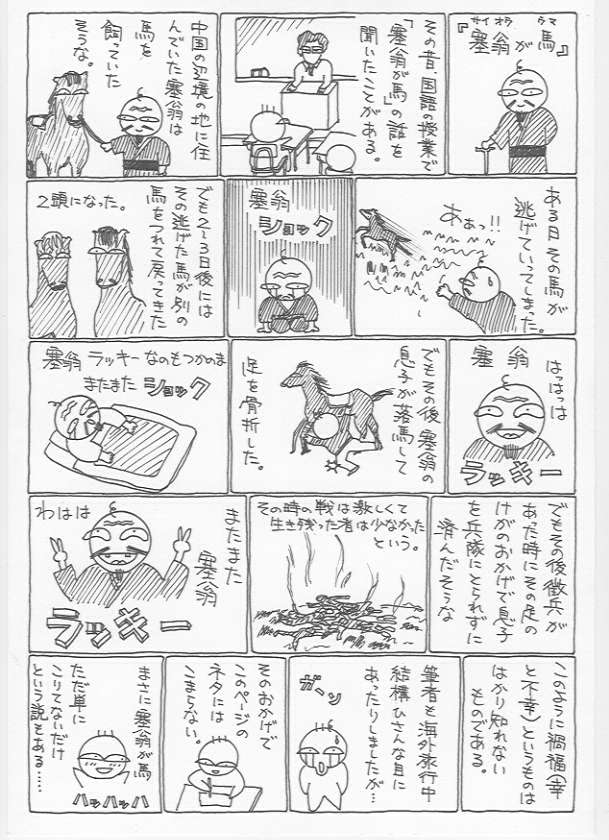 『塞翁が馬』
サイオウ
ウマ
その昔、国語の授業で
「塞翁が馬」の話を
聞いたことがある。
中国の辺境の地に住
んでいた塞翁は
馬を
飼っていた
そうな。
ある日その馬が
逃げていってしまった。
あぁっ!!
塞翁
ショック
でも2〜3日後には
その逃げた馬が別の
馬をつれて戻ってきた
2頭になった。
塞翁
はっはっは
ラッキー
でもその後塞翁の
息子が落馬して
足を骨折した。
塞翁 ラッキーなのもつかのま
またまたショック
でもその後徴兵が
あった時にその足の
けがのおかげで息子
を兵隊にとられずに
済んだそうな
その時の戦は激しくて
生き残った者は少なかった
という。
またまた
塞翁
わはは
ラッキー
このように禍福(幸
と不幸)というものは
はかり知れない
ものである。
筆者も海外旅行中
結構ひさんな目に
あったりしましたが…
ガーン
そのおかげで
このページの
ネタには
こまらない。
まさに塞翁が馬
ただ単に
こりてないだけ
という説もある……
ハッハッハッ